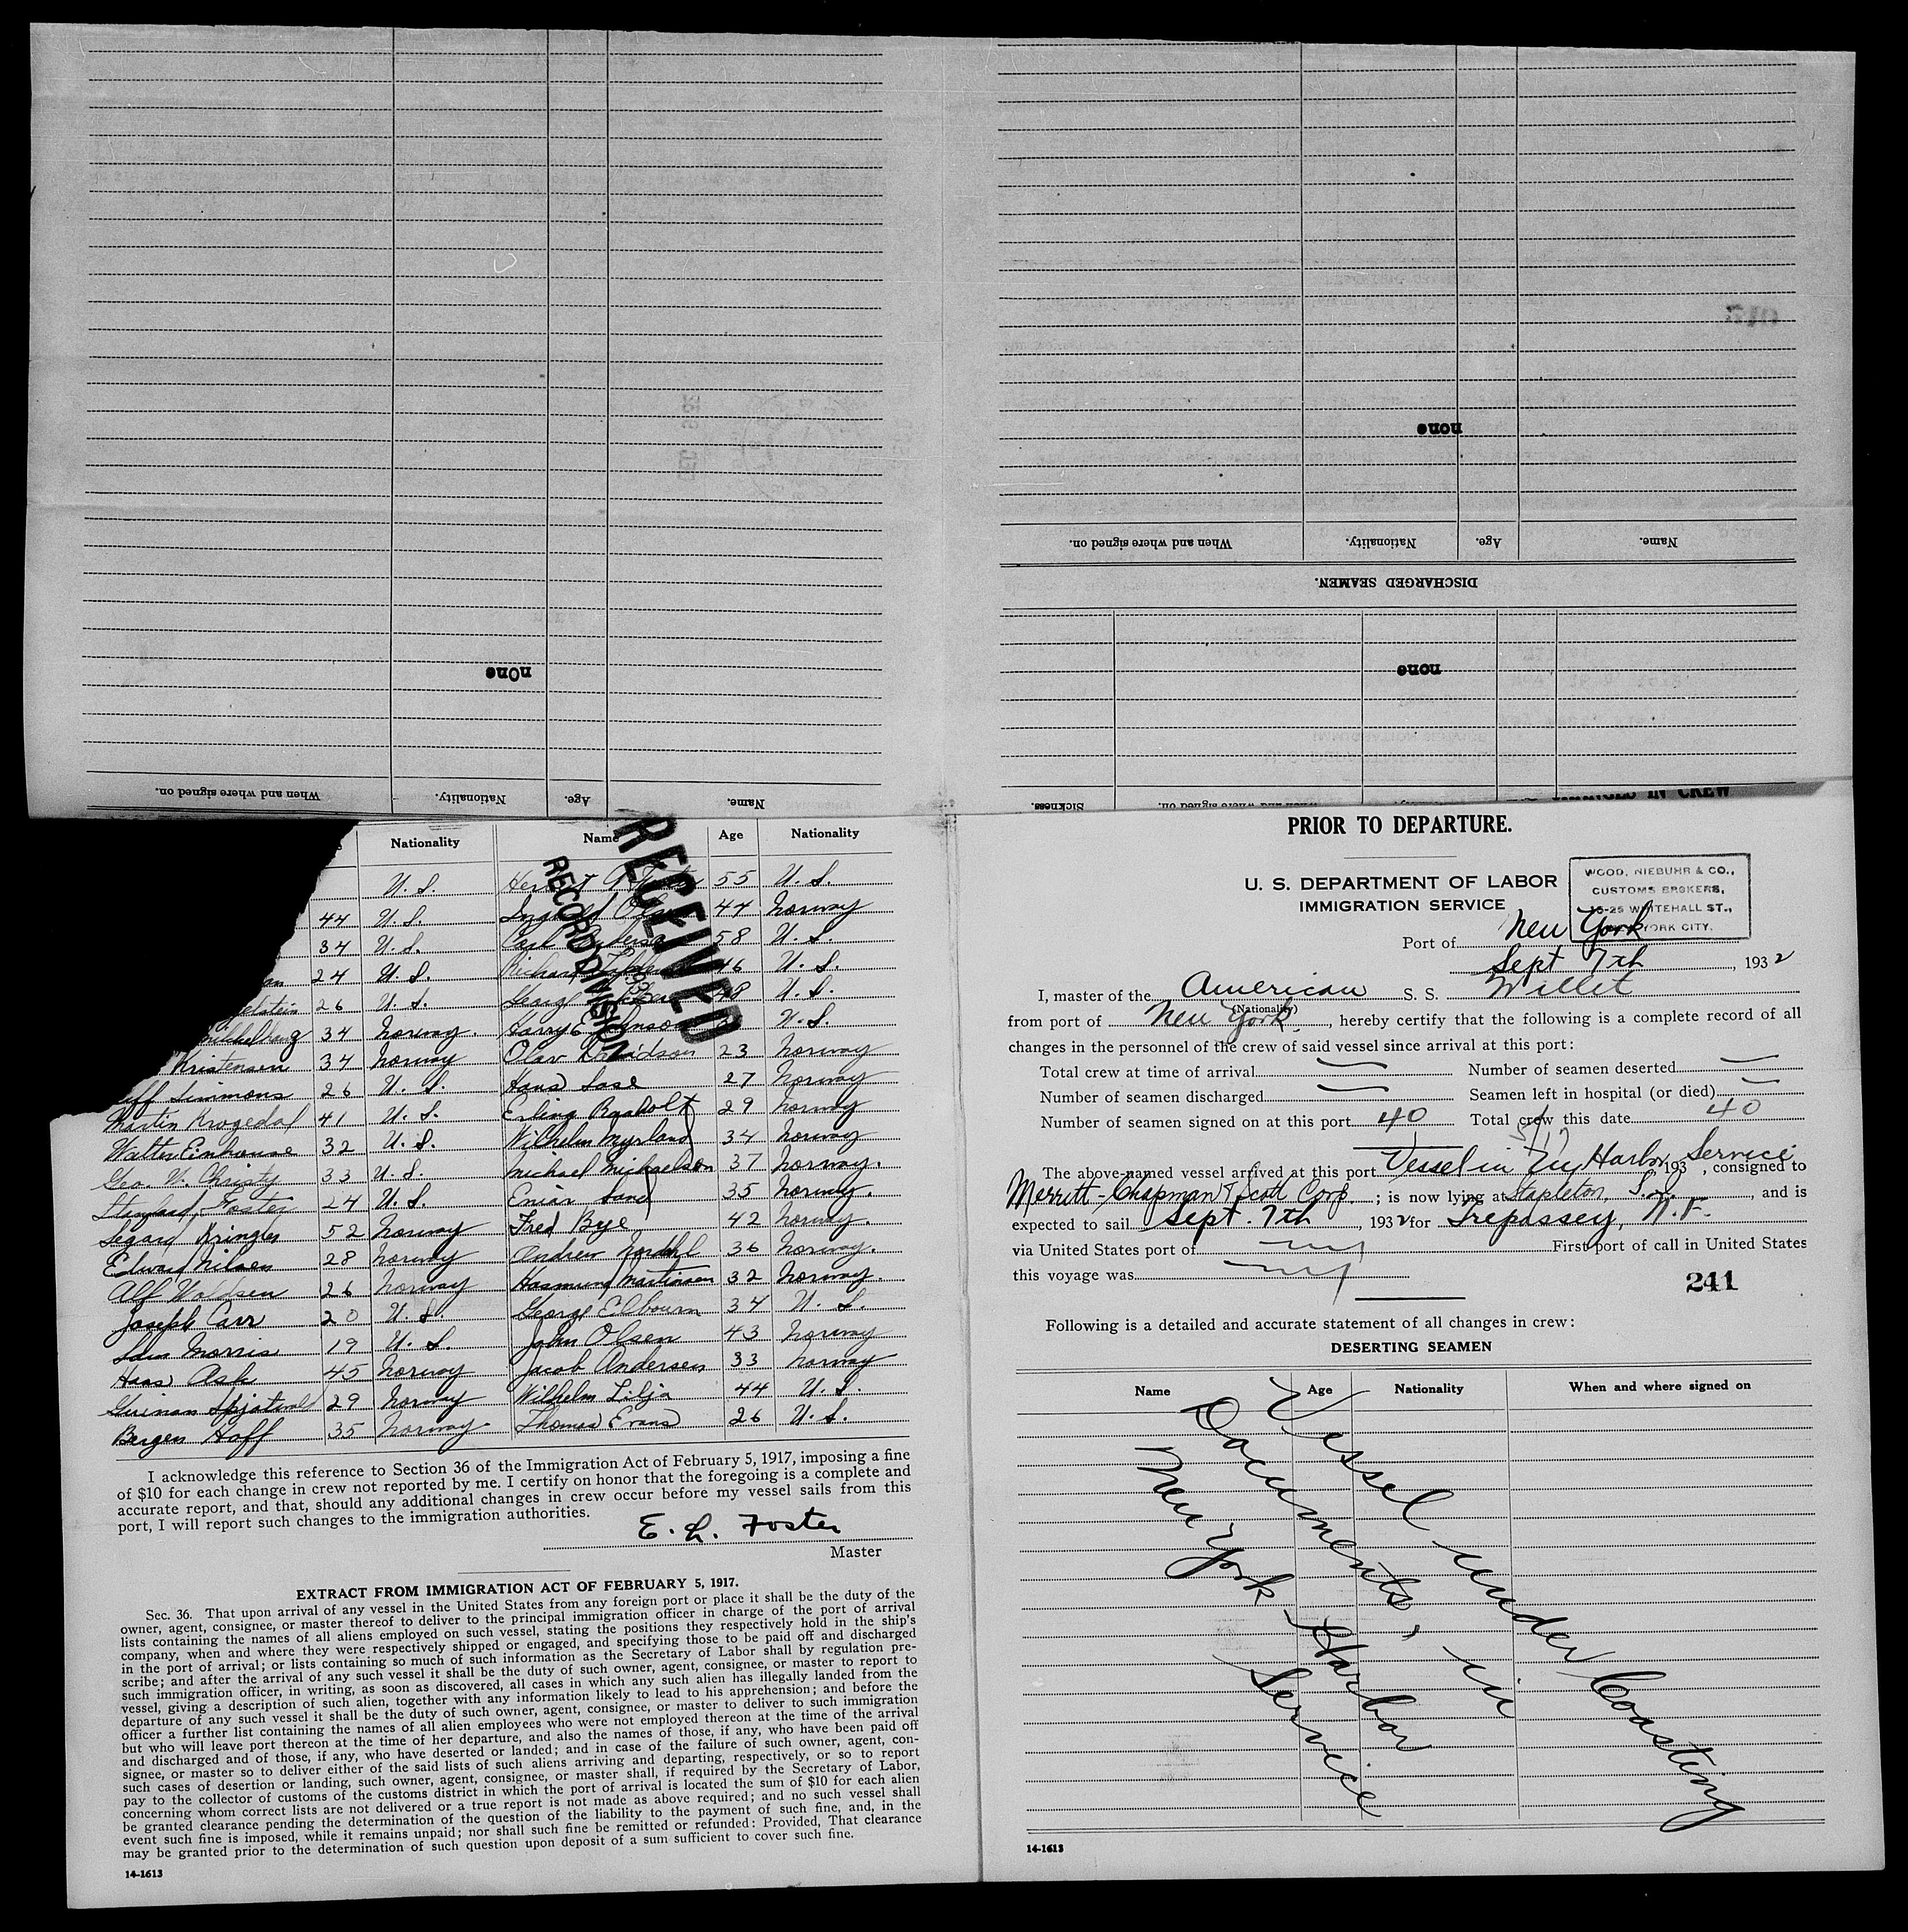 none
When and where signed on.
Nationality.
Age.
Name.
none
When and where signed on.
Nationality.
Age.
Name.
DISCHARGED SEAMEN.
none
Sickness.
When and where signed on.
IN CREW
Nationality
Name
Age
Nationality
RECEIVED
RECORD DIVISION
U. S. 55 U. S.
44 U. S. 47 Norway
34 U. S. Carl 58 U. S.
24 U. S. Richard 46 U. S.
26 U. S. George U. S.
34 Norway. Harry Johnson U. S.
Kristensen 34 Norway Olav Davidson 23 Norway
Simmons 26 U. S. Hans 27 Norway
Martin Krogedal 41 U. S. Erling 29 Norway
Walter Einhouse 32 U. S. Wilhelm Myrland 34 Norway
Geo. W. Christy 33 U. S. Michael Michaelson 37 Norway.
Foster 24 U. S. 35 Norway.
52 Norway Fred Bye 42 Norway.
Edward Nilsen 28 Norway Andrew 36 Norway.
Alf 26 Norway Martinsen 32 Norway.
Joseph Carr 20 U. S. George Elbourn 34 U. S.
Morris 19 U. S. John Olsen 43 Norway
Hans Ask 45 Norway Jacob Andersen 33 Norway
29 Norway Wilhelm Lilja 44 U. S.
Bergen Hoff 35 Norway Thomas Evans 26 U. S.
I acknowledge this reference to Section 36 of the Immigration Act of February 5, 1917, imposing a fine
of $10 for each change in crew not reported by me. I certify on honor that the foregoing is a complete and
accurate report, and that, should any additional changes in crew occur before my vessel sails from this
port, I will report such changes to the immigration authorities.
E. L. Foster
Master
EXTRACT FROM IMMIGRATION ACT OF FEBRUARY 5, 1917.
Sec. 36. That upon arrival of any vessel in the United States from any foreign port or place it shall be the duty of the
owner, agent, consignee, or master thereof to deliver to the principal immigration officer in charge of the port of arrival
lists containing the names of all aliens employed on such vessel, stating the positions they respectively hold in the ship's
company, when and where they were respectively shipped or engaged, and specifying those to be paid off and discharged
in the port of arrival; or lists containing so much of such information as the Secretary of Labor shall by regulation pre-
scribe; and after the arrival of any such vessel it shall be the duty of such owner, agent, consignee, or master to report to
such immigration officer, in writing, as soon as discovered, all cases in which any such alien has illegally landed from the
vessel, giving a description of such alien, together with any information likely to lead to his apprehension; and before the
departure of any such vessel it shall be the duty of such owner, agent, consignee, or master to deliver to such immigration
officer a further list containing the names of all alien employees who were not employed thereon at the time of the arrival
but who will leave port thereon at the time of her departure, and also the names of those, if any, who have been paid off
and discharged and of those, if any, who have deserted or landed; and in case of the failure of such owner, agent, con-
signee, or master so to deliver either of the said lists of such aliens arriving and departing, respectively, or so to report
such cases of desertion or landing, such owner, agent, consignee, or master shall, if required by the Secretary of Labor,
pay to the collector of customs of the customs district in which the port of arrival is located the sum of $10 for each alien
concerning whom correct lists are not delivered or a true report is not made as above required; and no such vessel shall
be granted clearance pending the determination of the question of the liability to the payment of such fine, and, in the
event such fine is imposed, while it remains unpaid; nor shall such fine be remitted or refunded: Provided, That clearance
may be granted prior to the determination of such question upon deposit of a sum sufficient to cover such fine.
14-1613
PRIOR TO DEPARTURE.
U. S. DEPARTMENT OF LABOR
IMMIGRATION SERVICE
WOOD, NIEBUHR & CO.,
CUSTOMS BROKERS,
WHITEHALL ST.,
YORK CITY.
Port of New York
Sept 7th, 1932
I, master of the American S. S. Willet
(Nationality)
from port of New York, hereby certify that the following is a complete record of all
changes in the personnel of the crew of said vessel since arrival at this port:
Total crew at time of arrival
Number of seamen deserted
Number of seamen discharged
Seamen left in hospital (or died)
Number of seamen signed on at this port 40
Total crew this date 40
The above-named vessel arrived at this port Vessel in Harbor Service, 193 , consigned to
Merritt-Chapman & Scott Corp.; is now lying at Stapleton, S. I., and is
expected to sail Sept. 7th, 1932 for Trepassey, N. F.
via United States port of
First port of call in United States
this voyage was
241
Following is a detailed and accurate statement of all changes in crew:
DESERTING SEAMEN
Name
Age
Nationality
When and where signed on
Vessel under Coasting
Documents, in
New York Harbor
Service
14-1613